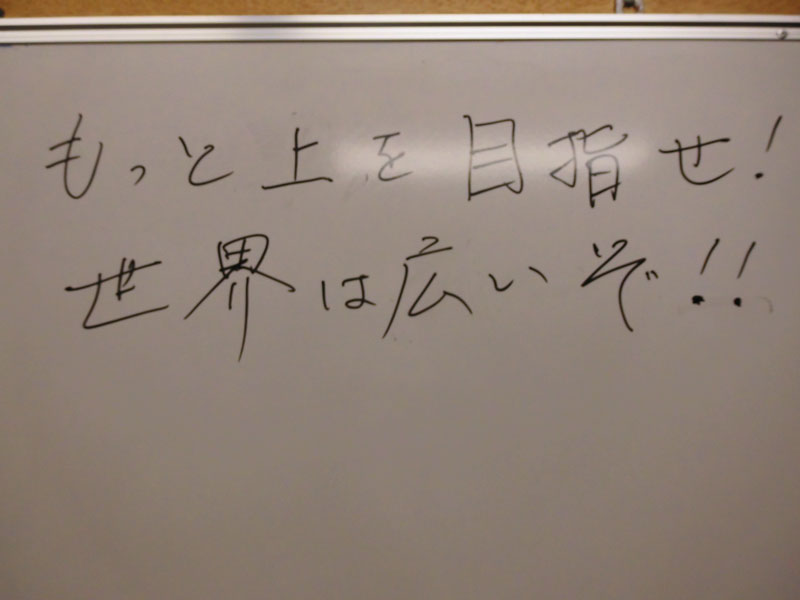 もっと上を目指せ!
世界は広いぞ!!